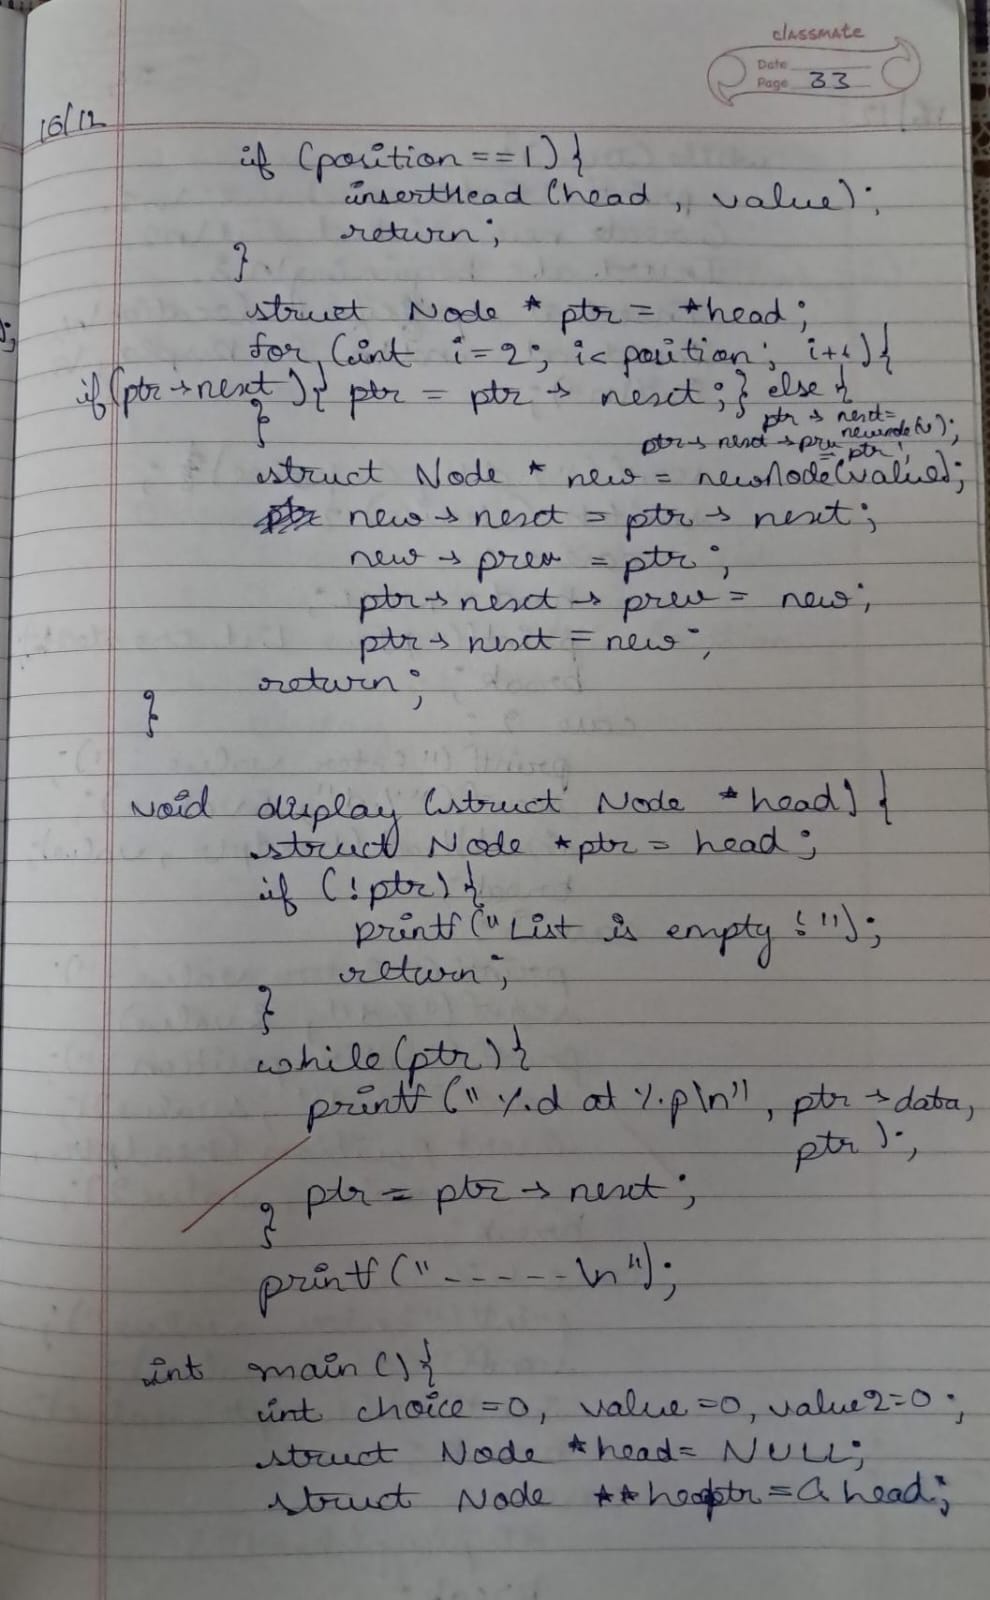 classmate
Date
Page 33
16/12
if (position==1){
insertHead (head, value);
return;
}
struct Node * ptr = *head;
for (int i=2; i< position; i++){
if(ptr→next){ ptr = ptr → next;} else {
ptr → next=
newnode(v);
ptr→ next →prev
= ptr;
}
struct Node * new = newNode(value);
new → next = ptr → next;
new → prev = ptr;
ptr→next→ prev = new;
ptr→ next = new;
return;
}
void display (struct Node *head) {
struct Node *ptr = head;
if (!ptr){
printf("List is empty!");
return;
}
while(ptr){
printf("%d at %p\n", ptr →data,
ptr );
ptr = ptr → next;
}
printf("-----\n");
int main(){
int choice=0, value=0, value2=0;
struct Node *head= NULL;
struct Node **headptr=& head;